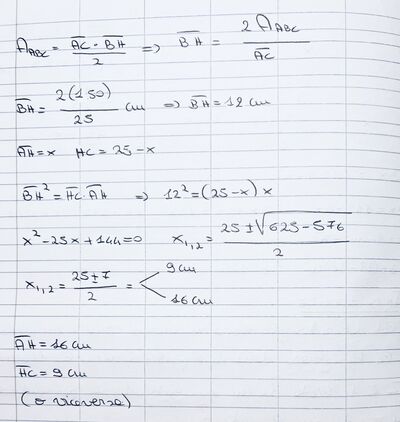 A_ABC = (A̅C̅ · B̅H̅)/2 => B̅H̅ = 2 A_ABC / A̅C̅
B̅H̅ = 2(150)/25 cm => B̅H̅ = 12 cm
A̅H̅ = x HC = 25 - x
B̅H̅² = H̅C̅ · A̅H̅ => 12² = (25 - x) x
x² - 25x + 144 = 0 x₁,₂ = (25 ± √(625 - 576))/2
x₁,₂ = (25 ± 7)/2 = < 9 cm
16 cm
A̅H̅ = 16 cm
H̅C̅ = 9 cm
(o viceversa)